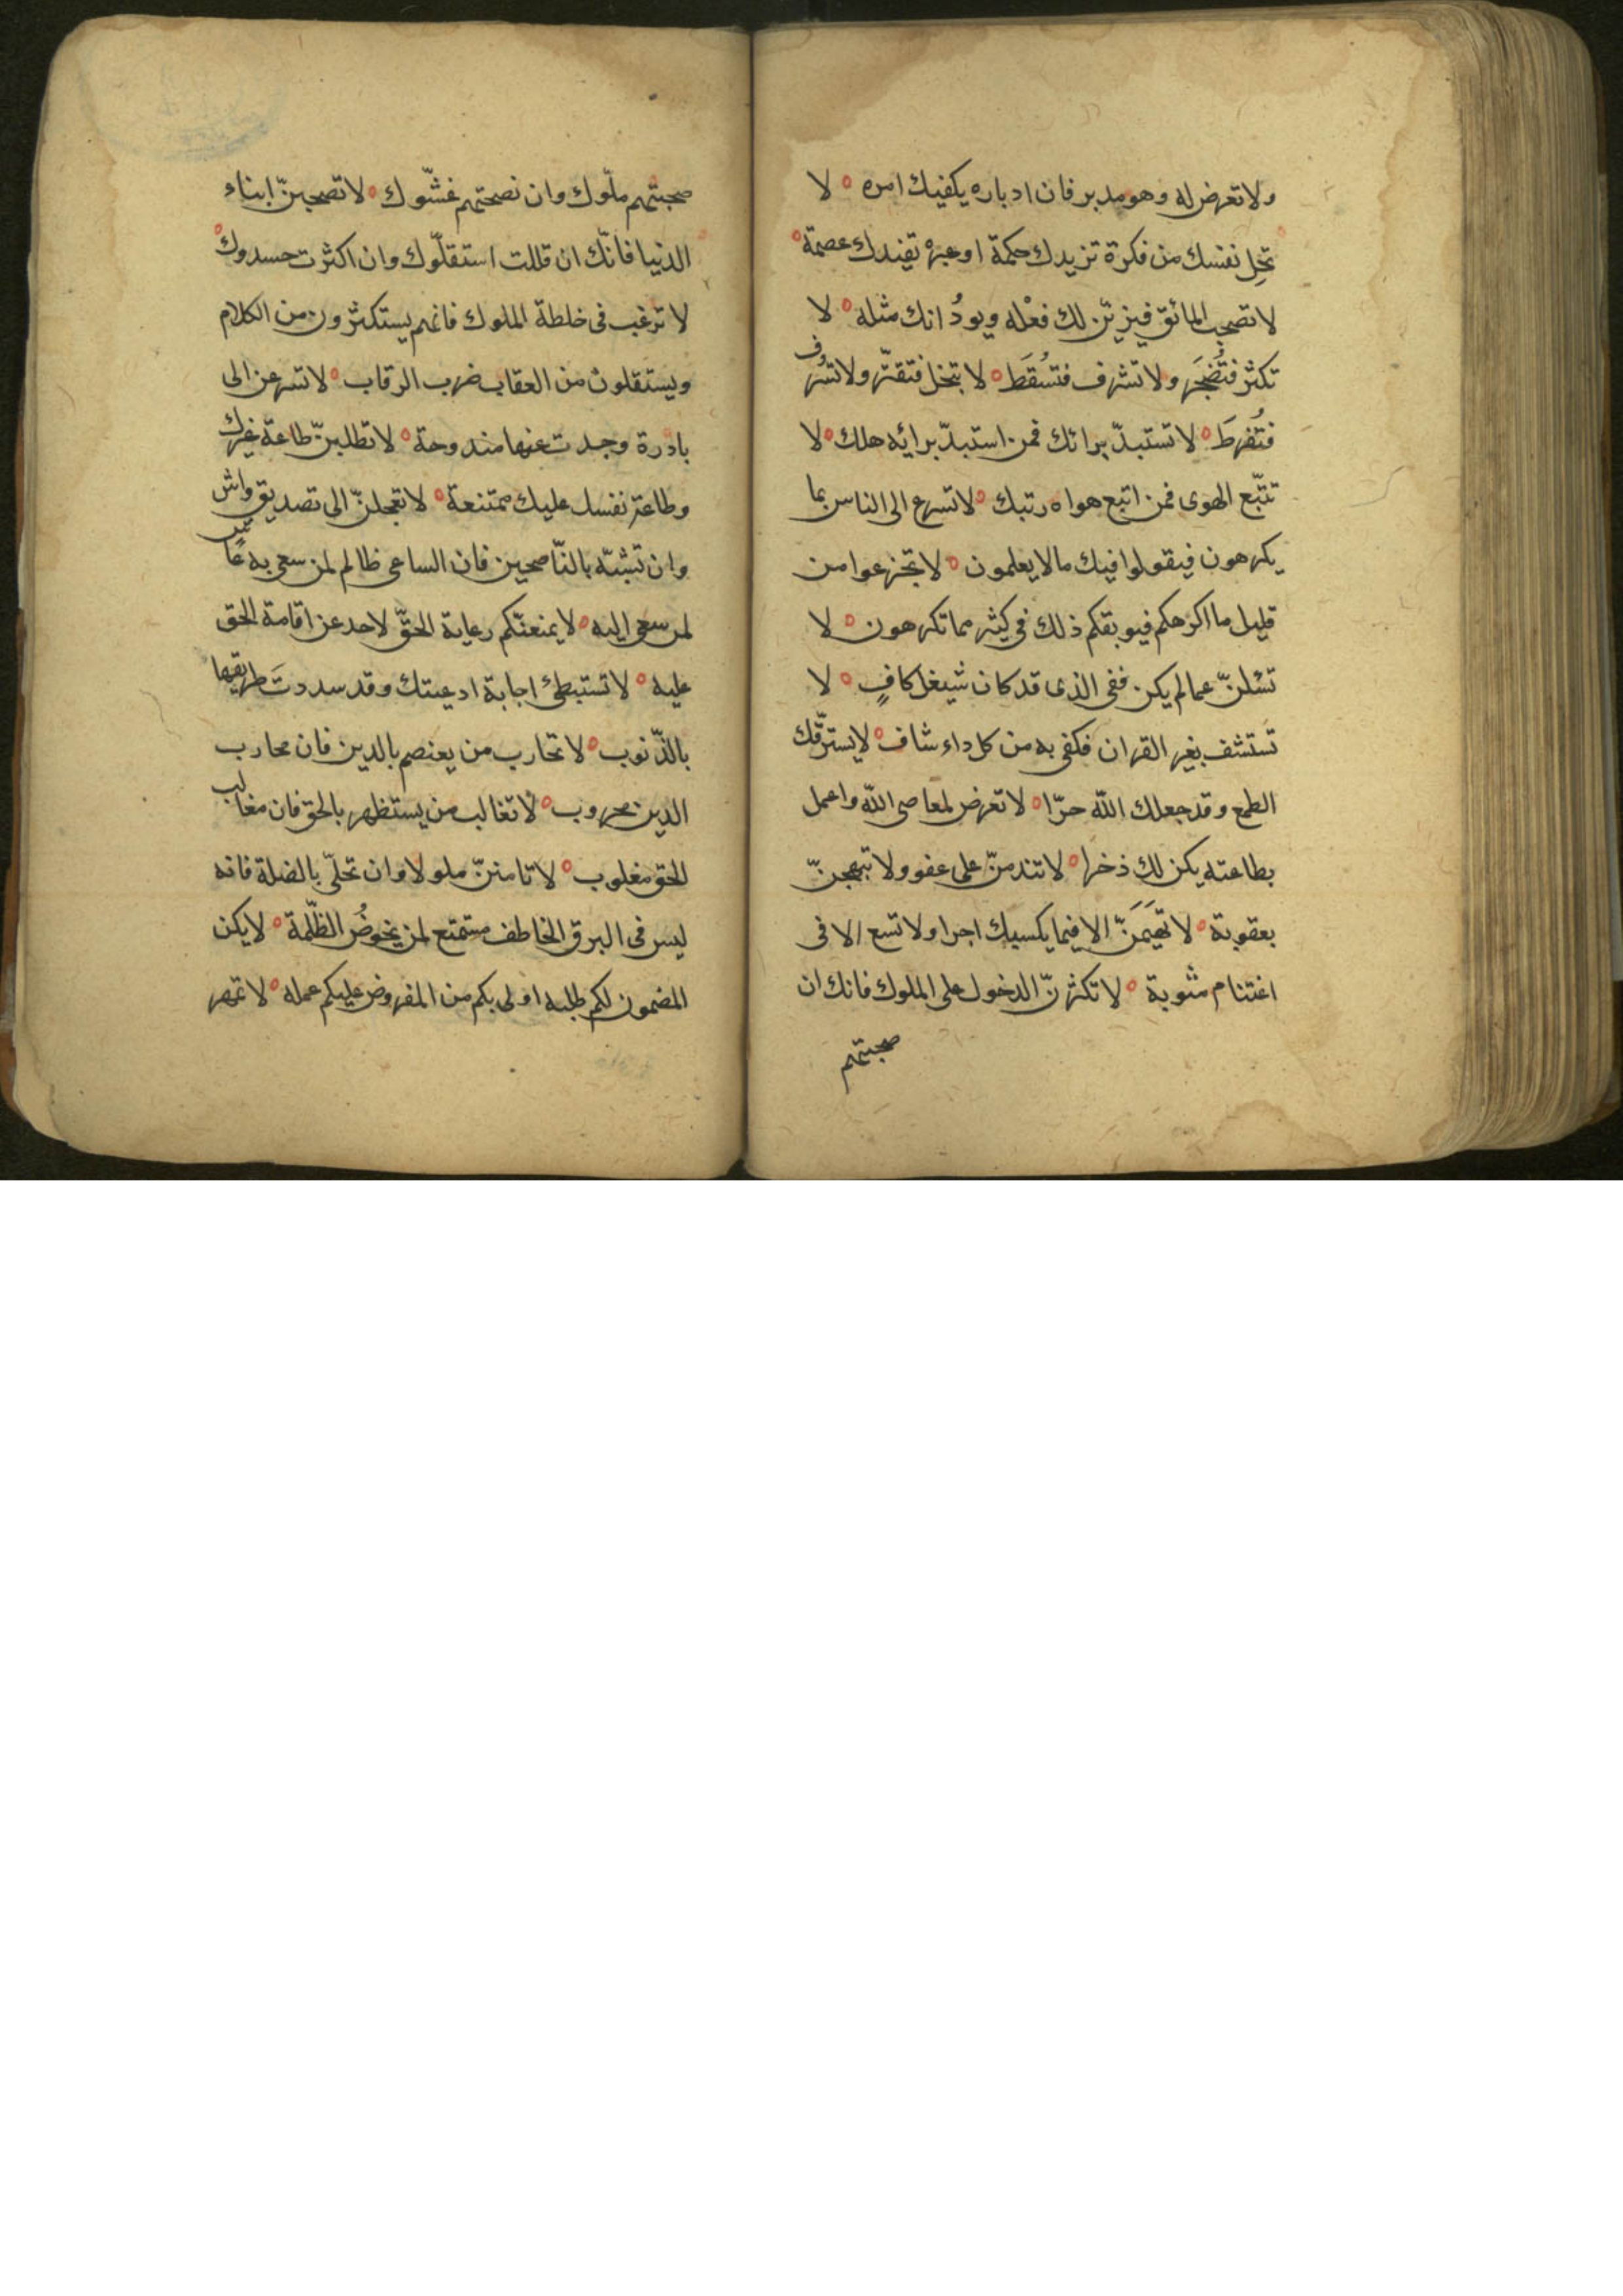 ولا تعرض له وهو مدبر فان ادباره يكفيك امره ه لا
تخل نفسك من فكرة تزيدك حكمة او عبرة تفيدك عصمة ه
لا تصحب المائق فيزيّن لك فعْله ويودُ انك مثله ه لا
تكثر فتُضجَر ولا تشرف فتسُقَط ه لا تبخل فتقتّر ولا تسُرف
فتُفرطَ ه لا تستبدّ برائك فمن استبدّ برائه هلك ه لا
تتبّع الهوى فمن اتبع هواه رتبك ه لا تسرع الى الناس بما
يكرهون فيقولوا فيك ما لا يعلمون ه لا تجزعوا من
قليل ما اكرهكم فيوبقكم ذلك فى كثير مما تكرهون ه لا
تسْلنّ عما لم يكن ففى الذى قد كان شيغل كافٍ ه لا
تستشف بغير القران فكفى به من كل داء شاف ه لا يسترقّك
الطمع وقد جعلك اللّه حرّا ه لا تعرض لمعاصى اللّه واعمل
بطاعته يكن لك ذخرا ه لا تندمنّ على عفو ولا تبهجنّ
بعقوبة ه لا تهيَمَنّ الا فيما يكسبك اجرا ولا تسع الا فى
اغتنام مثوبة ه لا تكثرنّ الدخول على الملوك فانك ان
صحبتهم
صحبتهم ملّوك وان نصحتهم غشّوك ه لا تصحبنّ ابناء
الدنيا فانّك ان قللت استقلّوك وان اكثرت حسدوك ه
لا ترغب فى خلطة الملوك فانهم يستكثرون من الكلام
ويستقلون من العقاب ضرب الرقاب ه لا تسرعن الى
بادرة وجدت عنها مندوحة ه لا تطلبنّ طاعة غيرك
وطاعة نفسك عليك ممتنعة ه لا تعجلنّ الى تصديق واش
وان تشبّه بالنّاصحين فان الساعى ظالم لمن سعى به غاش
لمن سعى اليه ه لا يمنعنّكم رعاية الحقّ لاحد عن اقامة الحق
عليه ه لا تستبطئ اجابة ادعيتك وقد سددتَ طريقها
بالذّنوب ه لا تحارب من يعتصم بالدين فان محارب
الدين محروب ه لا تغالب من يستظهر بالحق فان مغالب
الحق مغلوب ه لا تامننّ ملولا وان تحلّى بالصلة فانه
ليس فى البرق الخاطف مستمتع لمن يخوضُ الظّلمة ه لا يكن
المضمون لكم طلبه اولى بكم من المفروض عليكم عمله ه لا تمهر